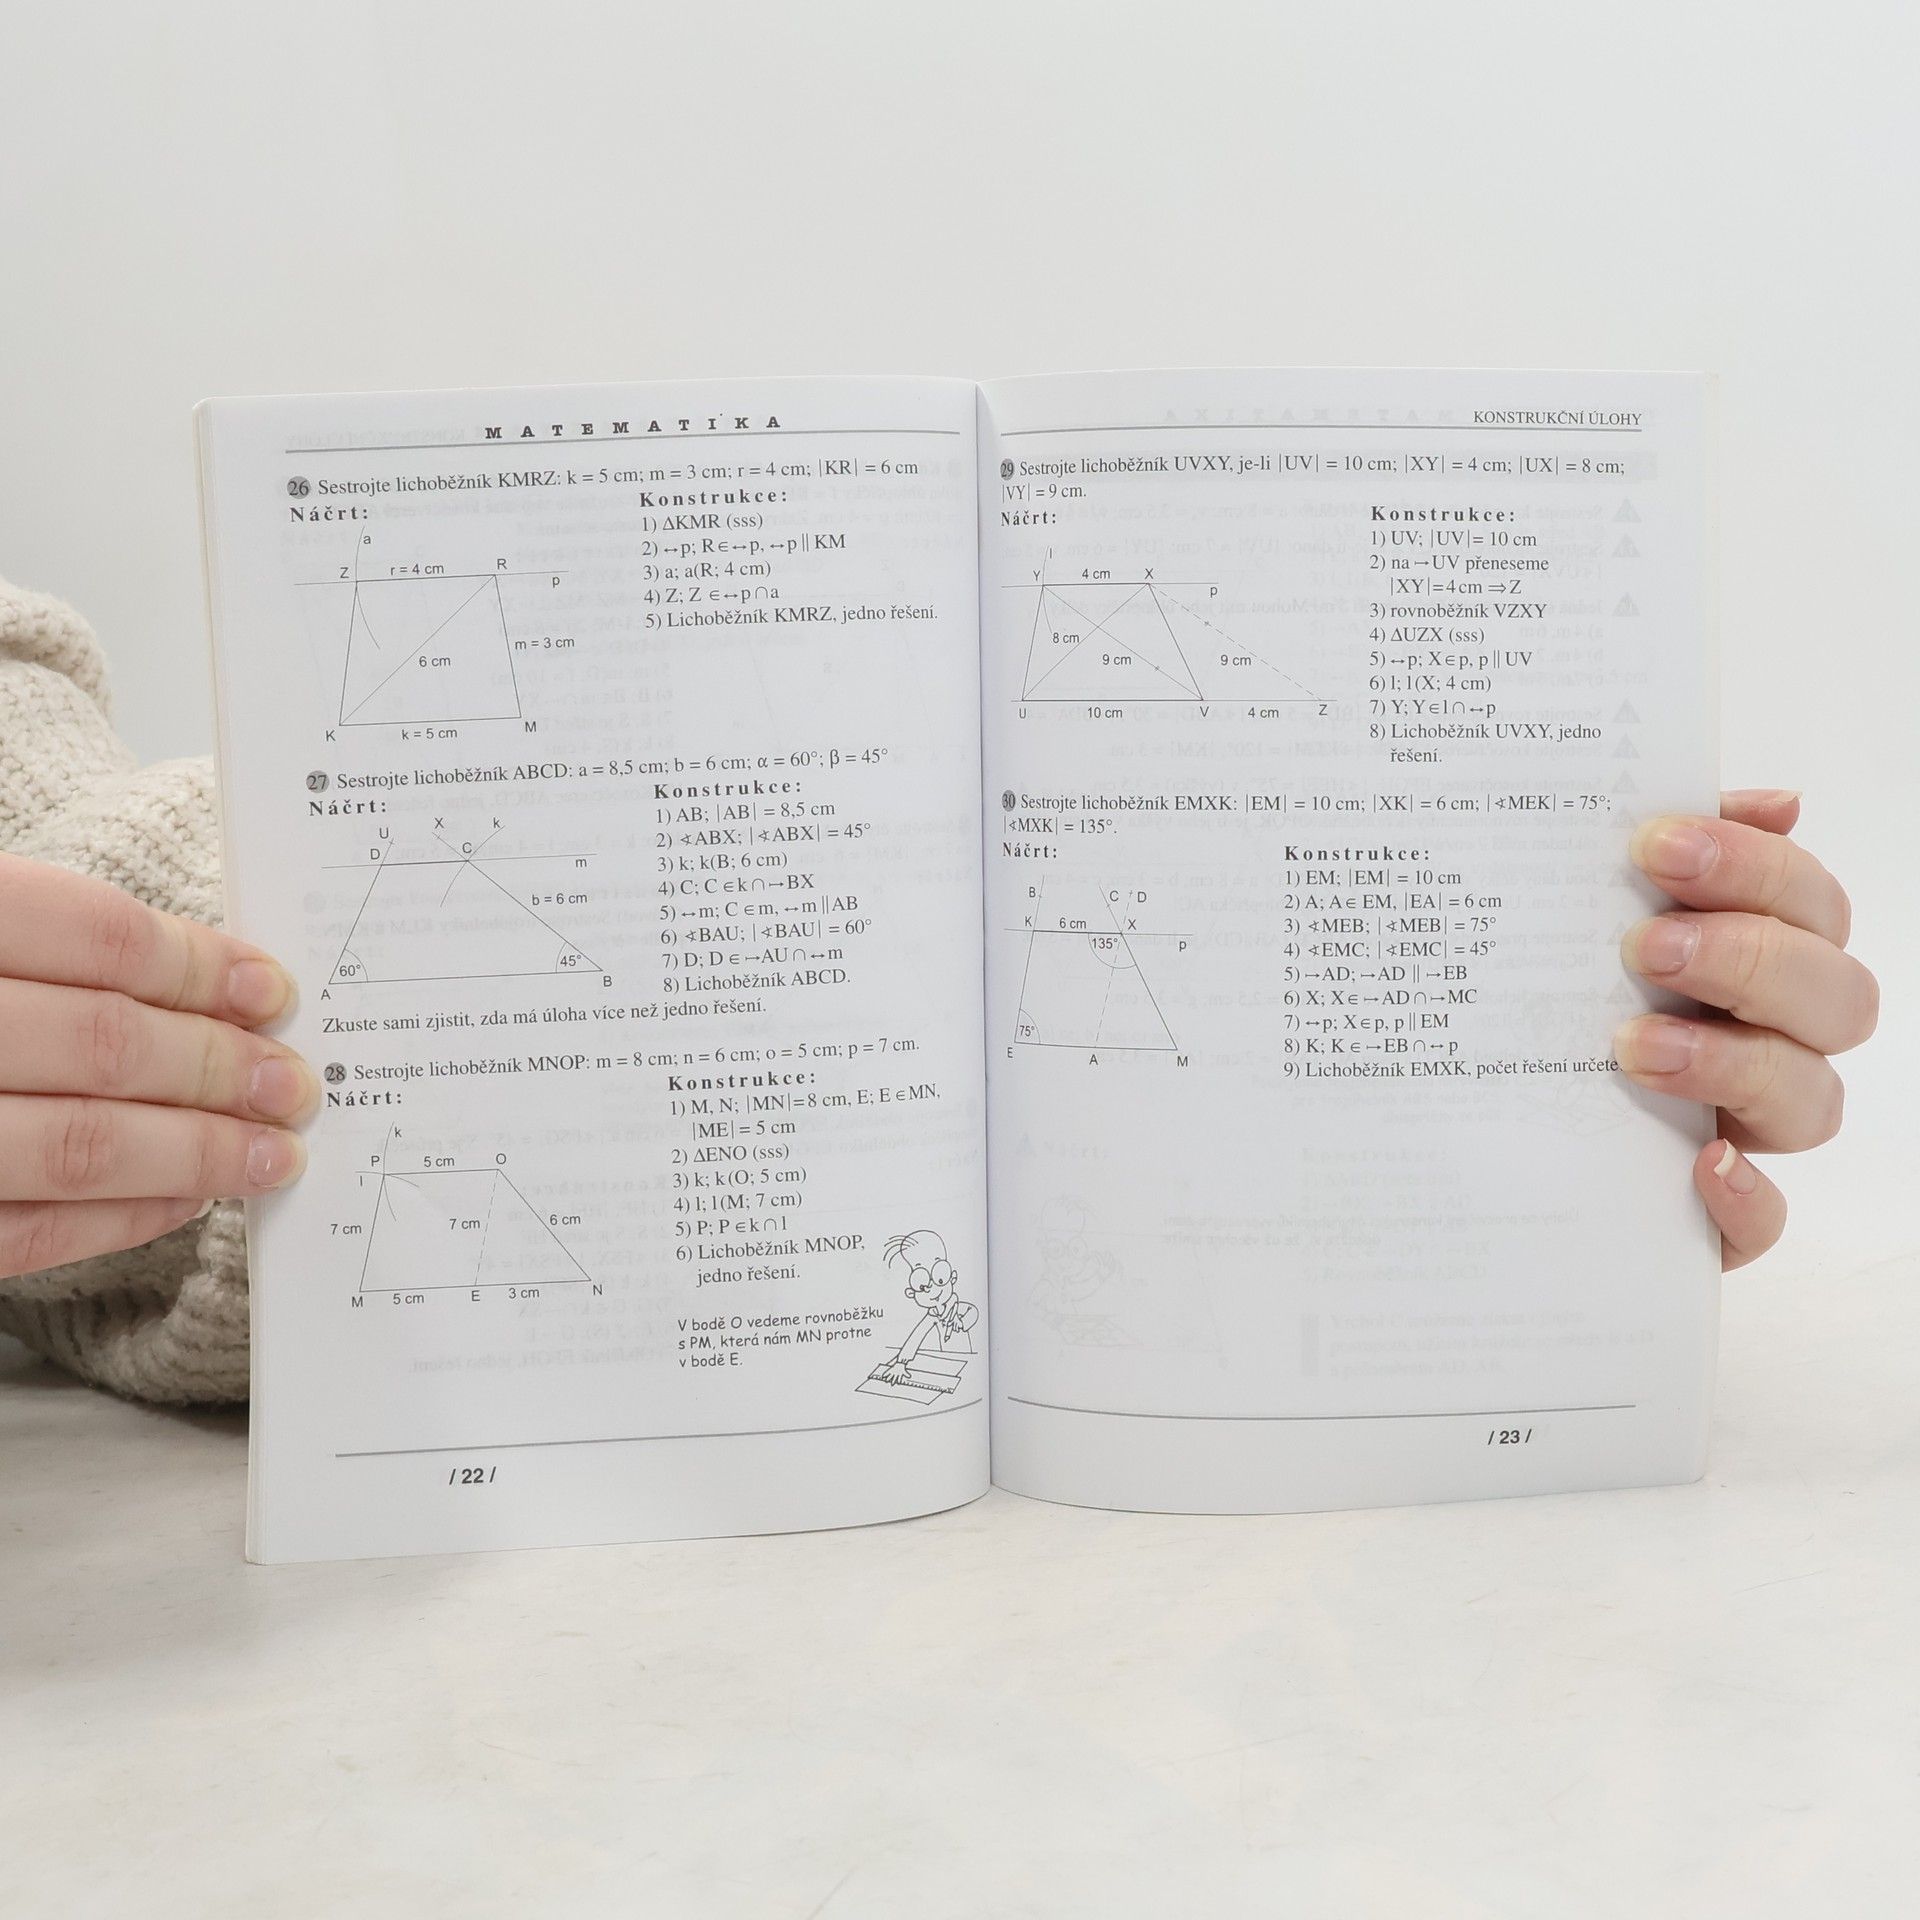 MATEMATIKA
26 Sestrojte lichoběžník KMRZ: k = 5 cm; m = 3 cm; r = 4 cm; |KR| = 6 cm
Náčrt:
a
Z
r = 4 cm
R
p
m = 3 cm
6 cm
K
k = 5 cm
M
Konstrukce:
1) ΔKMR (sss)
2) ↔p; R∈↔p, ↔p || KM
3) a; a(R; 4 cm)
4) Z; Z ∈↔p∩a
5) Lichoběžník KMRZ, jedno řešení.
27 Sestrojte lichoběžník ABCD: a = 8,5 cm; b = 6 cm; α = 60°; β = 45°
Náčrt:
U
X
k
D
C
m
b = 6 cm
60°
45°
A
B
Konstrukce:
1) AB; |AB| = 8,5 cm
2) ∢ABX; |∢ABX| = 45°
3) k; k(B; 6 cm)
4) C; C∈k∩↦BX
5) ↔m; C∈m, ↔m || AB
6) ∢BAU; |∢BAU| = 60°
7) D; D∈↦AU∩↔m
8) Lichoběžník ABCD.
Zkuste sami zjistit, zda má úloha více než jedno řešení.
28 Sestrojte lichoběžník MNOP: m = 8 cm; n = 6 cm; o = 5 cm; p = 7 cm.
Náčrt:
k
P
5 cm
O
l
7 cm
7 cm
6 cm
M
5 cm
E
3 cm
N
Konstrukce:
1) M, N; |MN|=8 cm, E; E∈MN,
|ME| = 5 cm
2) ΔENO (sss)
3) k; k(O; 5 cm)
4) l; l(M; 7 cm)
5) P; P∈k∩l
6) Lichoběžník MNOP,
jedno řešení.
V bodě O vedeme rovnoběžku
s PM, která nám MN protne
v bodě E.
/ 22 /
KONSTRUKČNÍ ÚLOHY
29 Sestrojte lichoběžník UVXY, je-li |UV| = 10 cm; |XY| = 4 cm; |UX| = 8 cm;
|VY| = 9 cm.
Náčrt:
l
Y
4 cm
X
p
8 cm
9 cm
9 cm
U
10 cm
V
4 cm
Z
Konstrukce:
1) UV; |UV|= 10 cm
2) na ↦UV přeneseme
|XY|=4cm ⇒Z
3) rovnoběžník VZXY
4) ΔUZX (sss)
5) ↔p; X∈p, p || UV
6) l; l(X; 4 cm)
7) Y; Y∈l∩↔p
8) Lichoběžník UVXY, jedno
řešení.
30 Sestrojte lichoběžník EMXK: |EM| = 10 cm; |XK| = 6 cm; |∢MEK| = 75°;
|∢MXK| = 135°.
Náčrt:
B
C
D
K
6 cm
X
135°
p
75°
E
A
M
Konstrukce:
1) EM; |EM| = 10 cm
2) A; A∈EM, |EA| = 6 cm
3) ∢MEB; |∢MEB| = 75°
4) ∢EMC; |∢EMC| = 45°
5) ↦AD; ↦AD || ↦EB
6) X; X∈↦AD∩↦MC
7) ↔p; X∈p, p || EM
8) K; K∈↦EB∩↔p
9) Lichoběžník EMXK, počet řešení určete.
/ 23 /